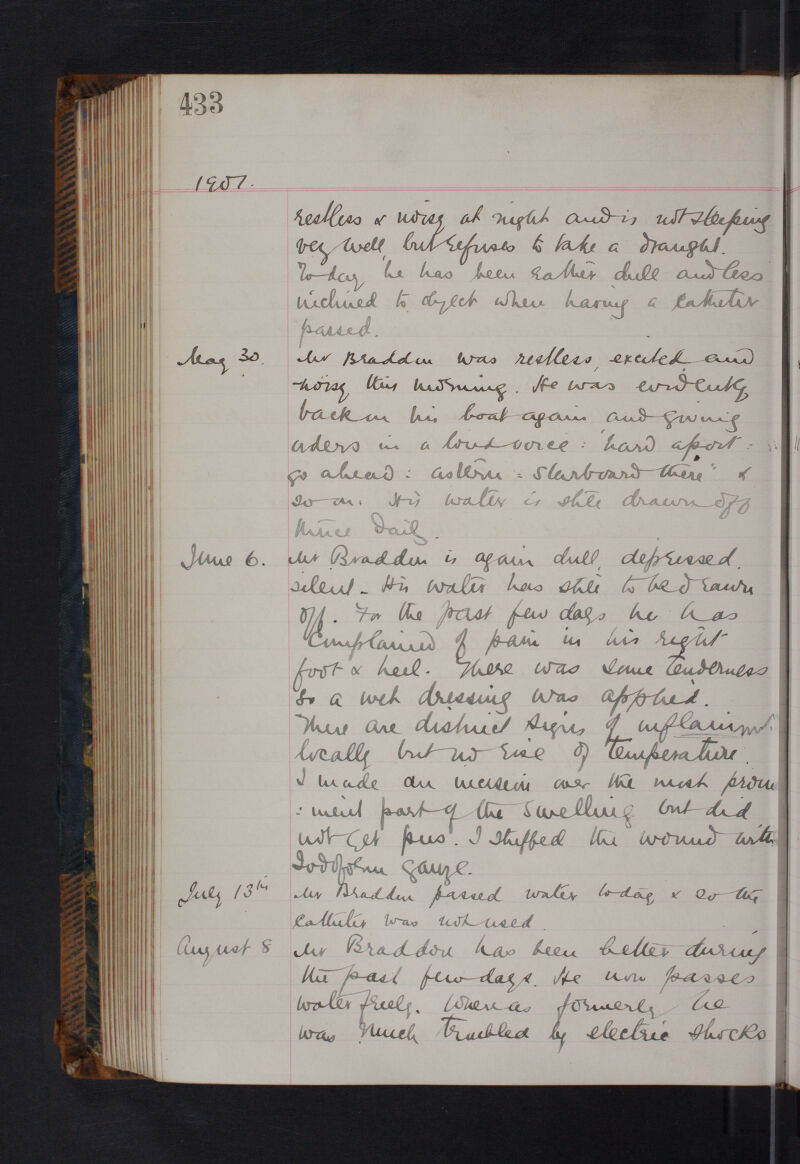 433
1907.
restless & noisy at night and is not sleeping
very well, but refuses to take a draught.
To-day he has been rather dull and less
inclined to object when having a catheter
passed.
May 30. Mr Braddon was restless, excited and
noisy this morning. He was evidently
back in his boat again and giving
orders in a loud voice: "hard aport:
go ahead: astern: Starboard there" &
so on. His water is still drawn off
thrice daily.
June 6. Mr Braddon is again dull, depressed,
silent - His water has still to be drawn
off. For the past few days he has
complained of pain in his right
foot & heel. There was some tenderness
so a wet dressing was applied.
There are distinct signs of inflammt.
locally but no rise of temperature.
I made an incision over the most prom
:inent part of the swelling but did
not get pus. I stuffed the wound with
Iodoform gauze.
July 13th Mr Braddon passed water today & so the
catheter was not used.
August 8 Mr Braddon has been better during
the past few days. He now passes
water freely. Whereas formerly he
was much troubled by electric shocks